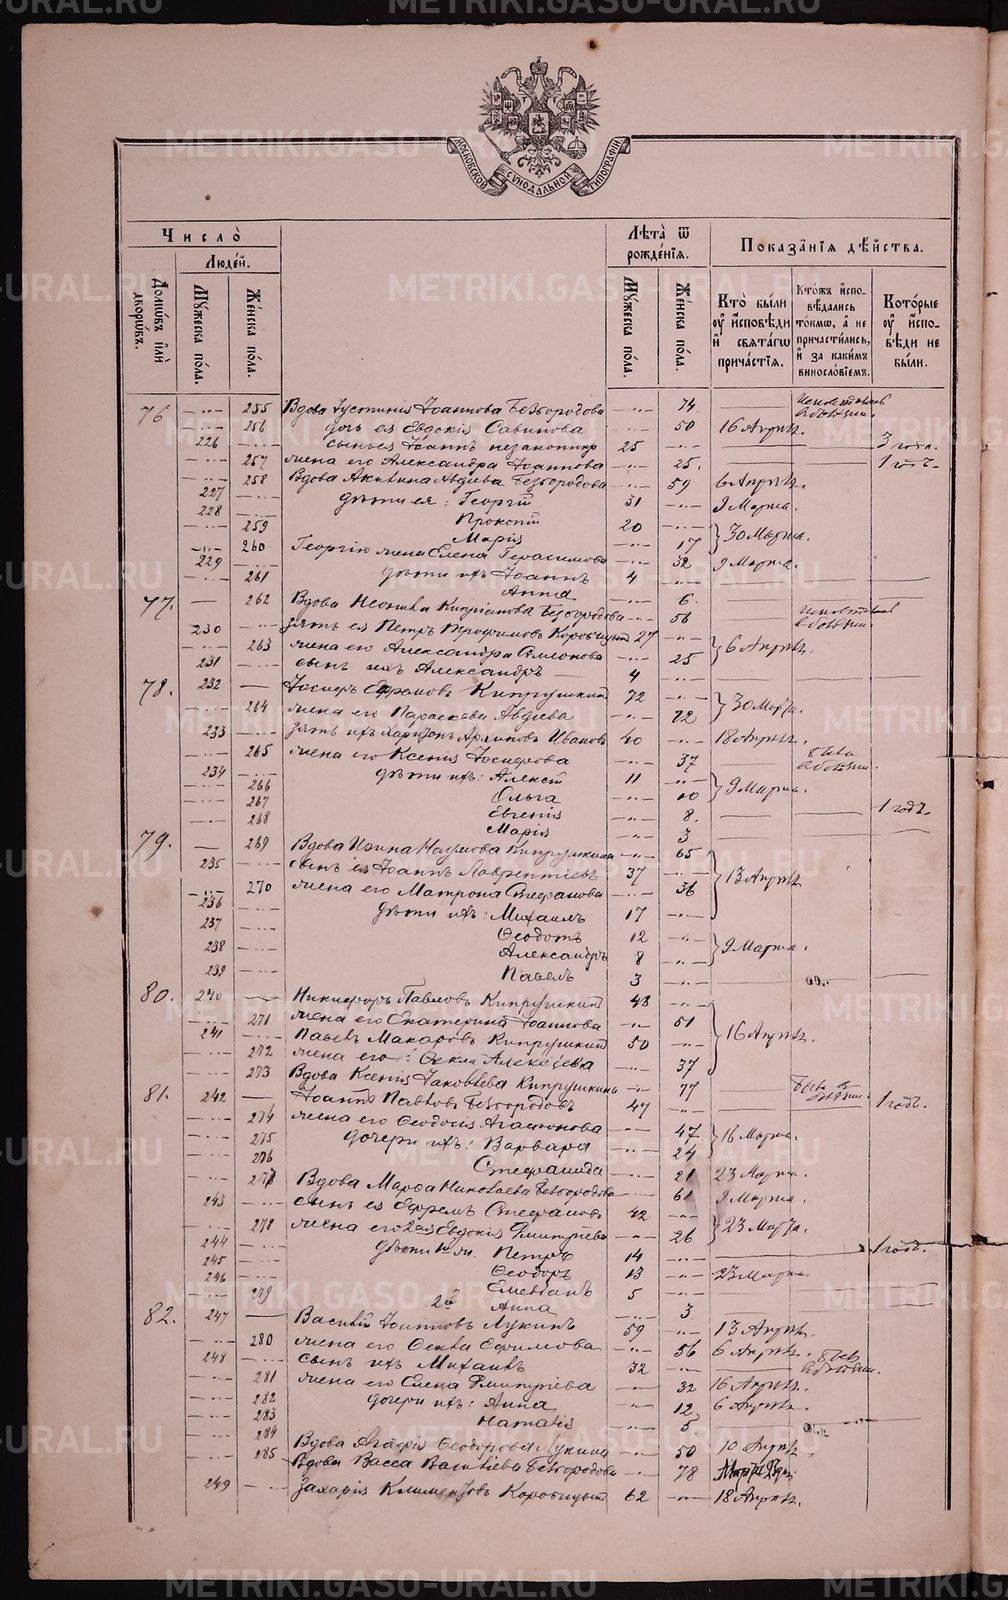 МОСКОВСКОЙ СѴНОДАЛЬНОЙ ТИПОГРАФІИ
Число̀
Людéй.
Домѡвъ и҆лѝ дворѡвъ.
Мꙋжеска по́ла.
Же́нска по́ла.
Лѣта̀ ѿ рожде́нїѧ.
Мꙋжеска по́ла.
Же́нска по́ла.
Показа̑нїѧ дѣ́йства.
Кто̀ бы́ли ᲂу҆ и҆сповѣ́ди и҆ свѧта́гѡ прича́стїѧ.
Кто́жъ и҆спо-вѣ́дались то́кмѡ, а҆ не причасти́лись, и҆ за каки́мъ винословїемъ.
Кото́рые ᲂу҆ и҆спо-вѣ́ди не бы́ли.
76 255 Вдова Іустинія Іоаннова Безбородова 74
256 дочь ея Евдокія Савинова 50 16 Апрѣл.
226 Іоаннъ 25 3 года.
257 жена его Александра Іоаннова 25. 1 годъ.
258 Вдова Акилина Авдіева Безбородова 59 6 Апрѣл.
227 дѣти ея: Георгій 31 9 Марта.
228 Прокопій 20
259 Марія 17 30 Марта.
260 Георгію жена Елена Герасимова 32 9 Марта.
229 дѣти ихъ Іоаннъ 4
261 Анна 6.
77. 262 Вдова Неонила Кипріанова Безбородова 56
230 зять ея Петръ Трофимовъ 27
263 жена его Александра Симеонова 25 6 Апрѣл.
231 сынъ ихъ Александръ 4
78. 232 Іосифъ Кипрушкинъ 72
264 жена его Параскева Авдіева 72 30 Марта.
233 зять ихъ Харитонъ Архиповъ Ивановъ 40 18 Апрѣл.
265 жена его Ксенія Іосифова 37
234 дѣти ихъ: Алексій 11
266 Ольга 10 9 Марта.
267 Евгенія 8. 1 годъ.
268 Марія 3
79. 269 Вдова Ирина Наумова Кипрушкина 65
235 сынъ ея Іоаннъ Лаврентіевъ 37 13 Апрѣл.
270 жена его Матрона Стефанова 36
236 дѣти ихъ: Михаилъ 17
237 Ѳеодотъ 12
238 Александръ 8 9 Марта.
239 Павелъ 3
80. 240 Никифоръ Павловъ Кипрушкинъ 48
271 жена его Екатерина Іоаннова 51
241 Макаровъ Кипрушкинъ 50 16 Апрѣл.
272 жена его: Ѳекла Алексѣева 37
273 Вдова Ксенія Іаковлева Кипрушкина 77
81. 242 Іоаннъ Павловъ Безбородовъ 47 1 годъ.
274 жена его Ѳеодосія Агафонова 47
275 дочери ихъ: Варвара 24 16 Марта.
276 Стефанида 21 23 Марта.
277 Вдова Марѳа Николаева Безбородова 61 9 Марта.
243 сынъ ея Ефремъ Стефановъ 42
278 жена его 2ая Евдокія Димитріева 26 23 Марта.
244 дѣти Петръ 14 1 годъ.
245 Ѳеодоръ 13 23 Марта.
246 Емеліанъ 5
279 2й Анна 3
82. 247 Василій Іоанновъ Лукинъ 59 13 Апрѣл.
280 жена его Ѳекла Ефимова 56 6 Апрѣл.
248 сынъ ихъ Михаилъ 32
281 жена его Елена Димитріева 32 16 Апрѣл.
282 дочери ихъ: Анна 12 6 Апрѣл.
283 Наталія 5
284 Вдова Агафія Ѳеодорова Лукина 50 10 Апрѣл.
285 Вдова Васса Васильева Безбородова 78
249 Захарія Климентовъ 62 18 Апрѣл.
METRIKI.GASO-URAL.RU